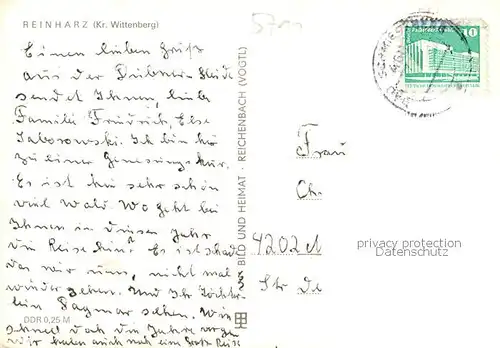 REINHARZ (Kr. Wittenberg)
Einen lieben Gruß
aus der Dübener Heide
sendet Ihnen, liebe
Familie Friedrich, Else
Jaborowski. Ich bin hier
zu einer Genesungskur.
Es ist hier sehr schön
viel Wald. Wo geht bei
Ihnen in diesem Jahr
die Reise hin? Es ist schade
das wir uns, nicht mal
wieder sehen. Und Ihr Töchter-
lein Dagmar sehen. Wie
schnell doch die Jahre vergehen
wir haben auch noch eine große Reise
DDR 0,25 M
BILD UND HEIMAT · REICHENBACH (VOGTL)
10
Frau
Ch.
4202
Str De
privacy protection
Datenschutz